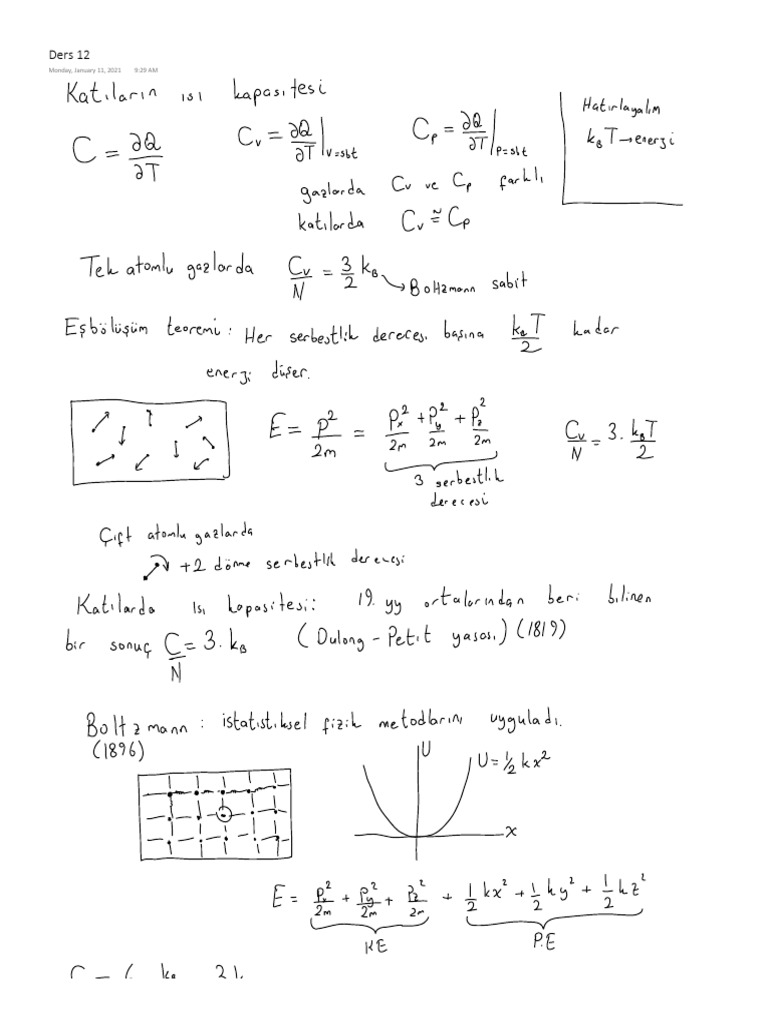 Ders 12
Monday, January 11, 2021 9:29 AM
Katıların ısı kapasitesi
Hatırlayalım
k_B T → enerji
C = ∂Q/∂T
C_v = ∂Q/∂T |_V=sbt
C_p = ∂Q/∂T |_P=sbt
gazlarda C_v ve C_p farklı
katılarda C_v ≅ C_p
Tek atomlu gazlarda C_v/N = 3/2 k_B → Boltzmann sabit
Eşbölüşüm teoremi: Her serbestlik derecesi başına k_B T/2 kadar
enerji düşer.
E = p²/2m = p_x²/2m + p_y²/2m + p_z²/2m
3 serbestlik
derecesi
C_v/N = 3. k_B T/2
Çift atomlu gazlarda
+2 dönme serbestlik derecesi
Katılarda ısı kapasitesi: 19. yy ortalarından beri bilinen
bir sonuç C/N = 3. k_B (Dulong - Petit yasası) (1819)
Boltzmann: istatistiksel fizik metodlarını uyguladı.
(1896)
U
U = ½ kx²
x
E = p_x²/2m + p_y²/2m + p_z²/2m + ½ kx² + ½ ky² + ½ kz²
KE
P.E